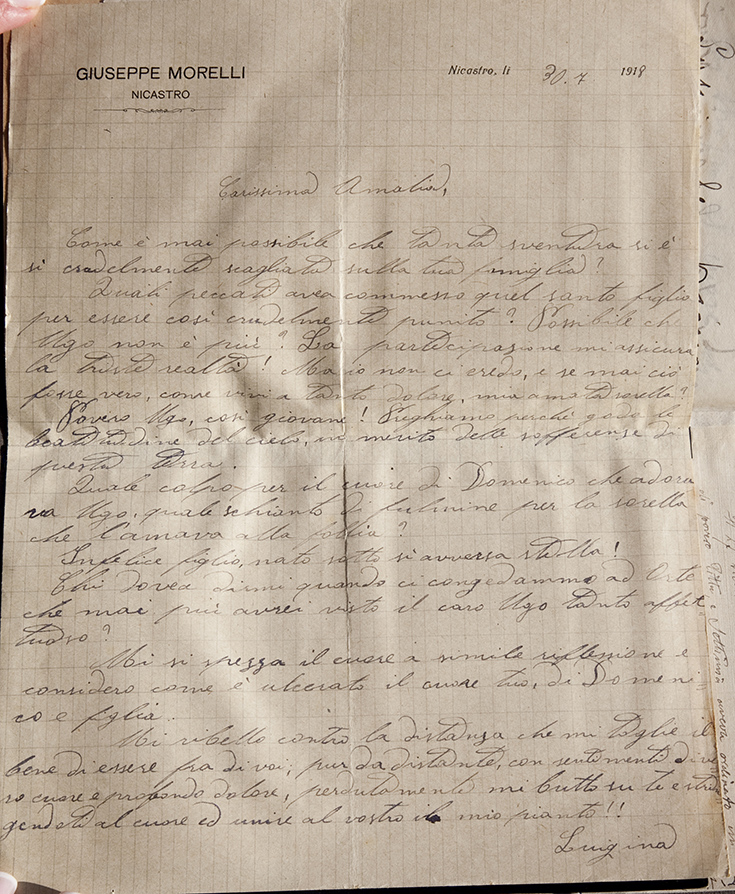 GIUSEPPE MORELLI
NICASTRO
Nicastro, li 30.7 1918
Carissima Amalia,
Come è mai possibile che tanta sventura si è
sì crudelmente scagliata sulla tua famiglia?
Quali peccati avea commesso quel santo figlio
per essere così crudelmente punito? Possibile che
Ugo non è più? La partecipazione mi assicura
la triste realtà! Ma io non ci credo, e se mai ciò
fosse vero, come vivi a tanto dolore, mia amata sorella?
Povero Ugo, così giovane! Preghiamo perché goda le
beatitudine del cielo, in merito delle sofferenze di
questa terra.
Quale colpo per il cuore di Domenico che adora
va Ugo, quale schianto di fulmine per la sorella
che l'amava alla follia?
Infelice figlio, nato sotto sì avversa stella!
Chi dovea dirmi quando ci congedammo ad Orte
che mai più avrei visto il caro Ugo tanto affet
tuoso?
Mi si spezza il cuore a simile riflessione e
considero come è ulcerato il cuore tuo, di Domeni=
co e figlia.
Mi ribello contro la distanza che mi toglie il
bene di essere fra di voi; pur da distante, con sentimento di ve
ro cuore e profondo dolore, perdutamente mi butto su te strin
gendoti al cuore ed unire al vostro il mio pianto!!
Luigina